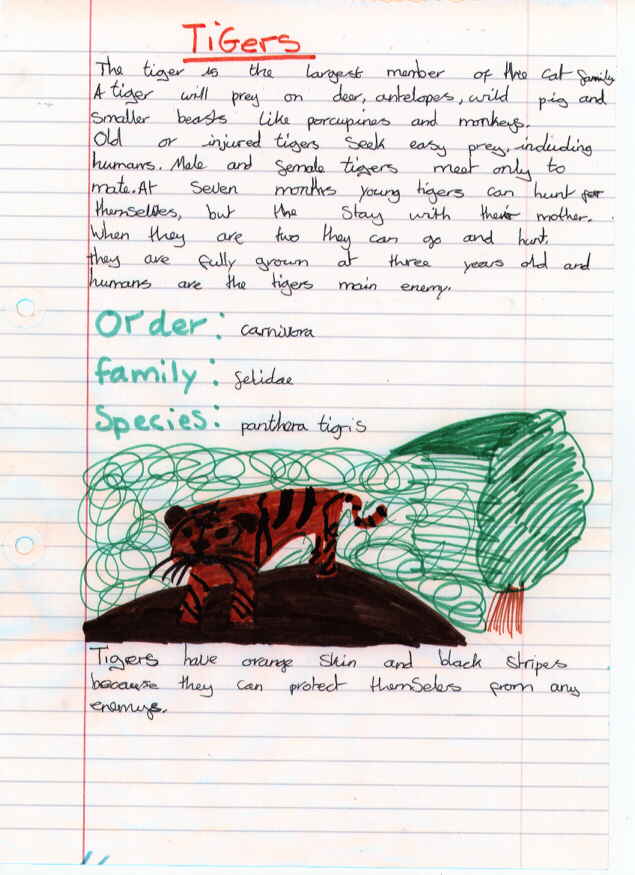 TiGers
The tiger is the largest member of the cat family
A tiger will prey on deer, antelopes, wild pig and
smaller beasts like porcupines and monkeys.
Old or injured tigers seek easy prey, including
humans. Male and female tigers meet only to
mate. At seven months young tigers can hunt for
themselves, but the stay with their mother.
When they are two they can go and hunt.
they are fully grown at three years old and
humans are the tigers main enemy.
Order: carnivora
family: felidae
Species: panthera tigris
Tigers have orange skin and black stripes
because they can protect themselers from any
enemys.